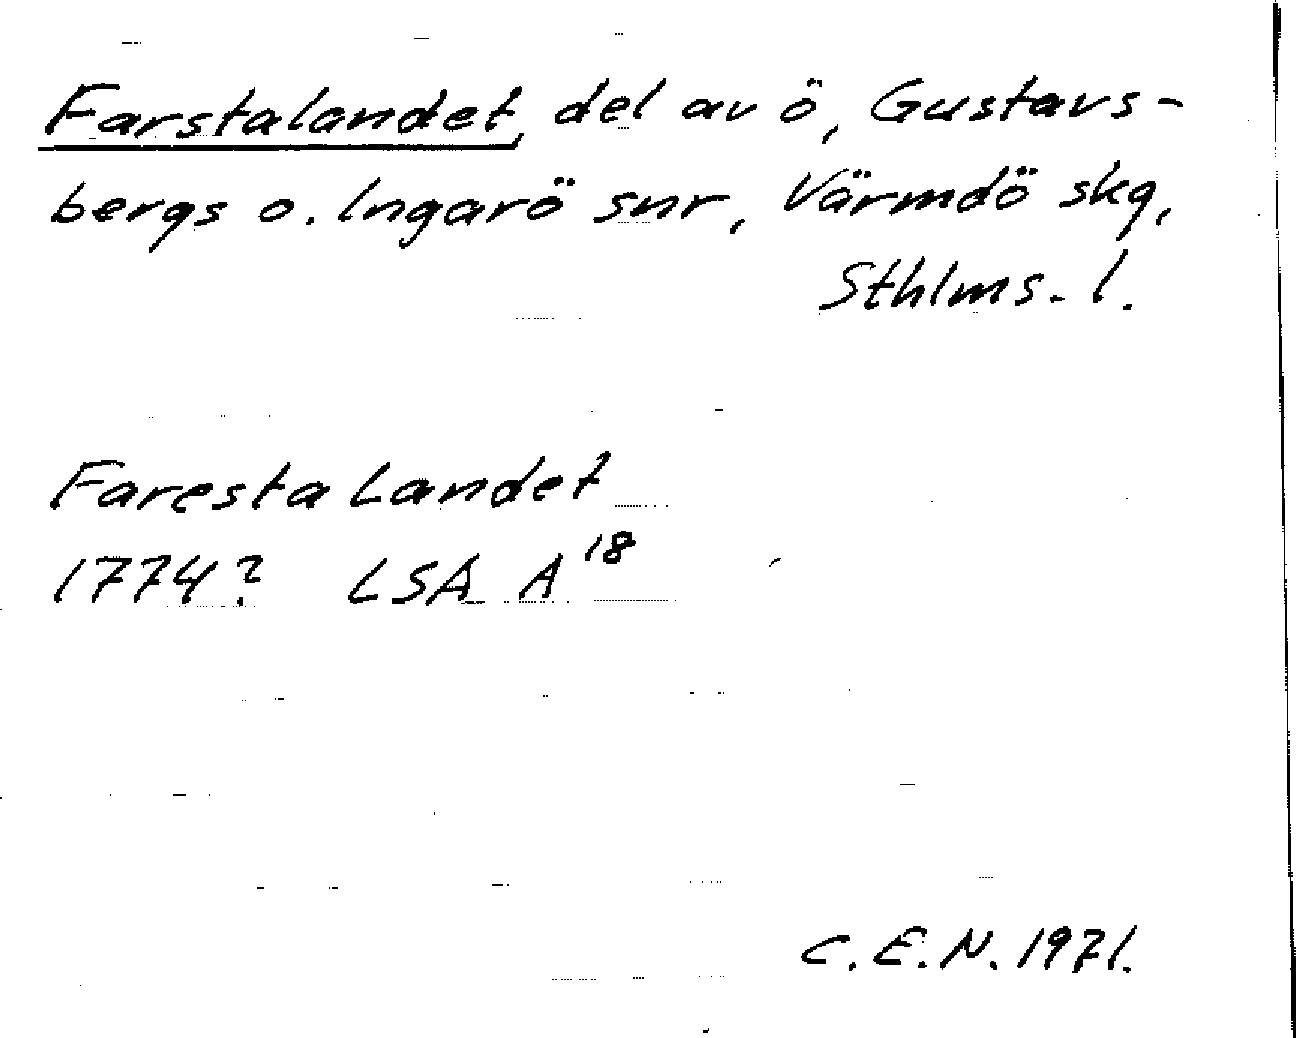 Farstalandet, del av ö, Gustavs-
bergs o. Ingarö snr, Värmdö skg,
Sthlms. l.
Faresta Landet
1774? LSA A¹⁸
C.E.N. 1971.